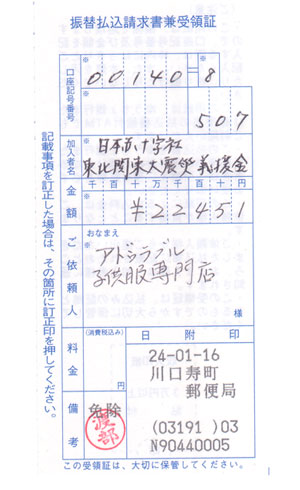 振替払込請求書兼受領証
口座記号番号
※
00140=8
※
507
加入者名
※
日本赤十字社
東北関東大震災義援金
金額
千百十万千百十円
※
¥22451
ご依頼人
おなまえ
※
アドゥラブル
子供服専門店
様
料金
(消費税込み)
円
日附印
24-01-16
川口寿町
郵便局
(03191 )03
N90440005
備考
免除
渡部
この受領証は、大切に保管してください。
記載事項を訂正した場合は、その箇所に訂正印を押してください。